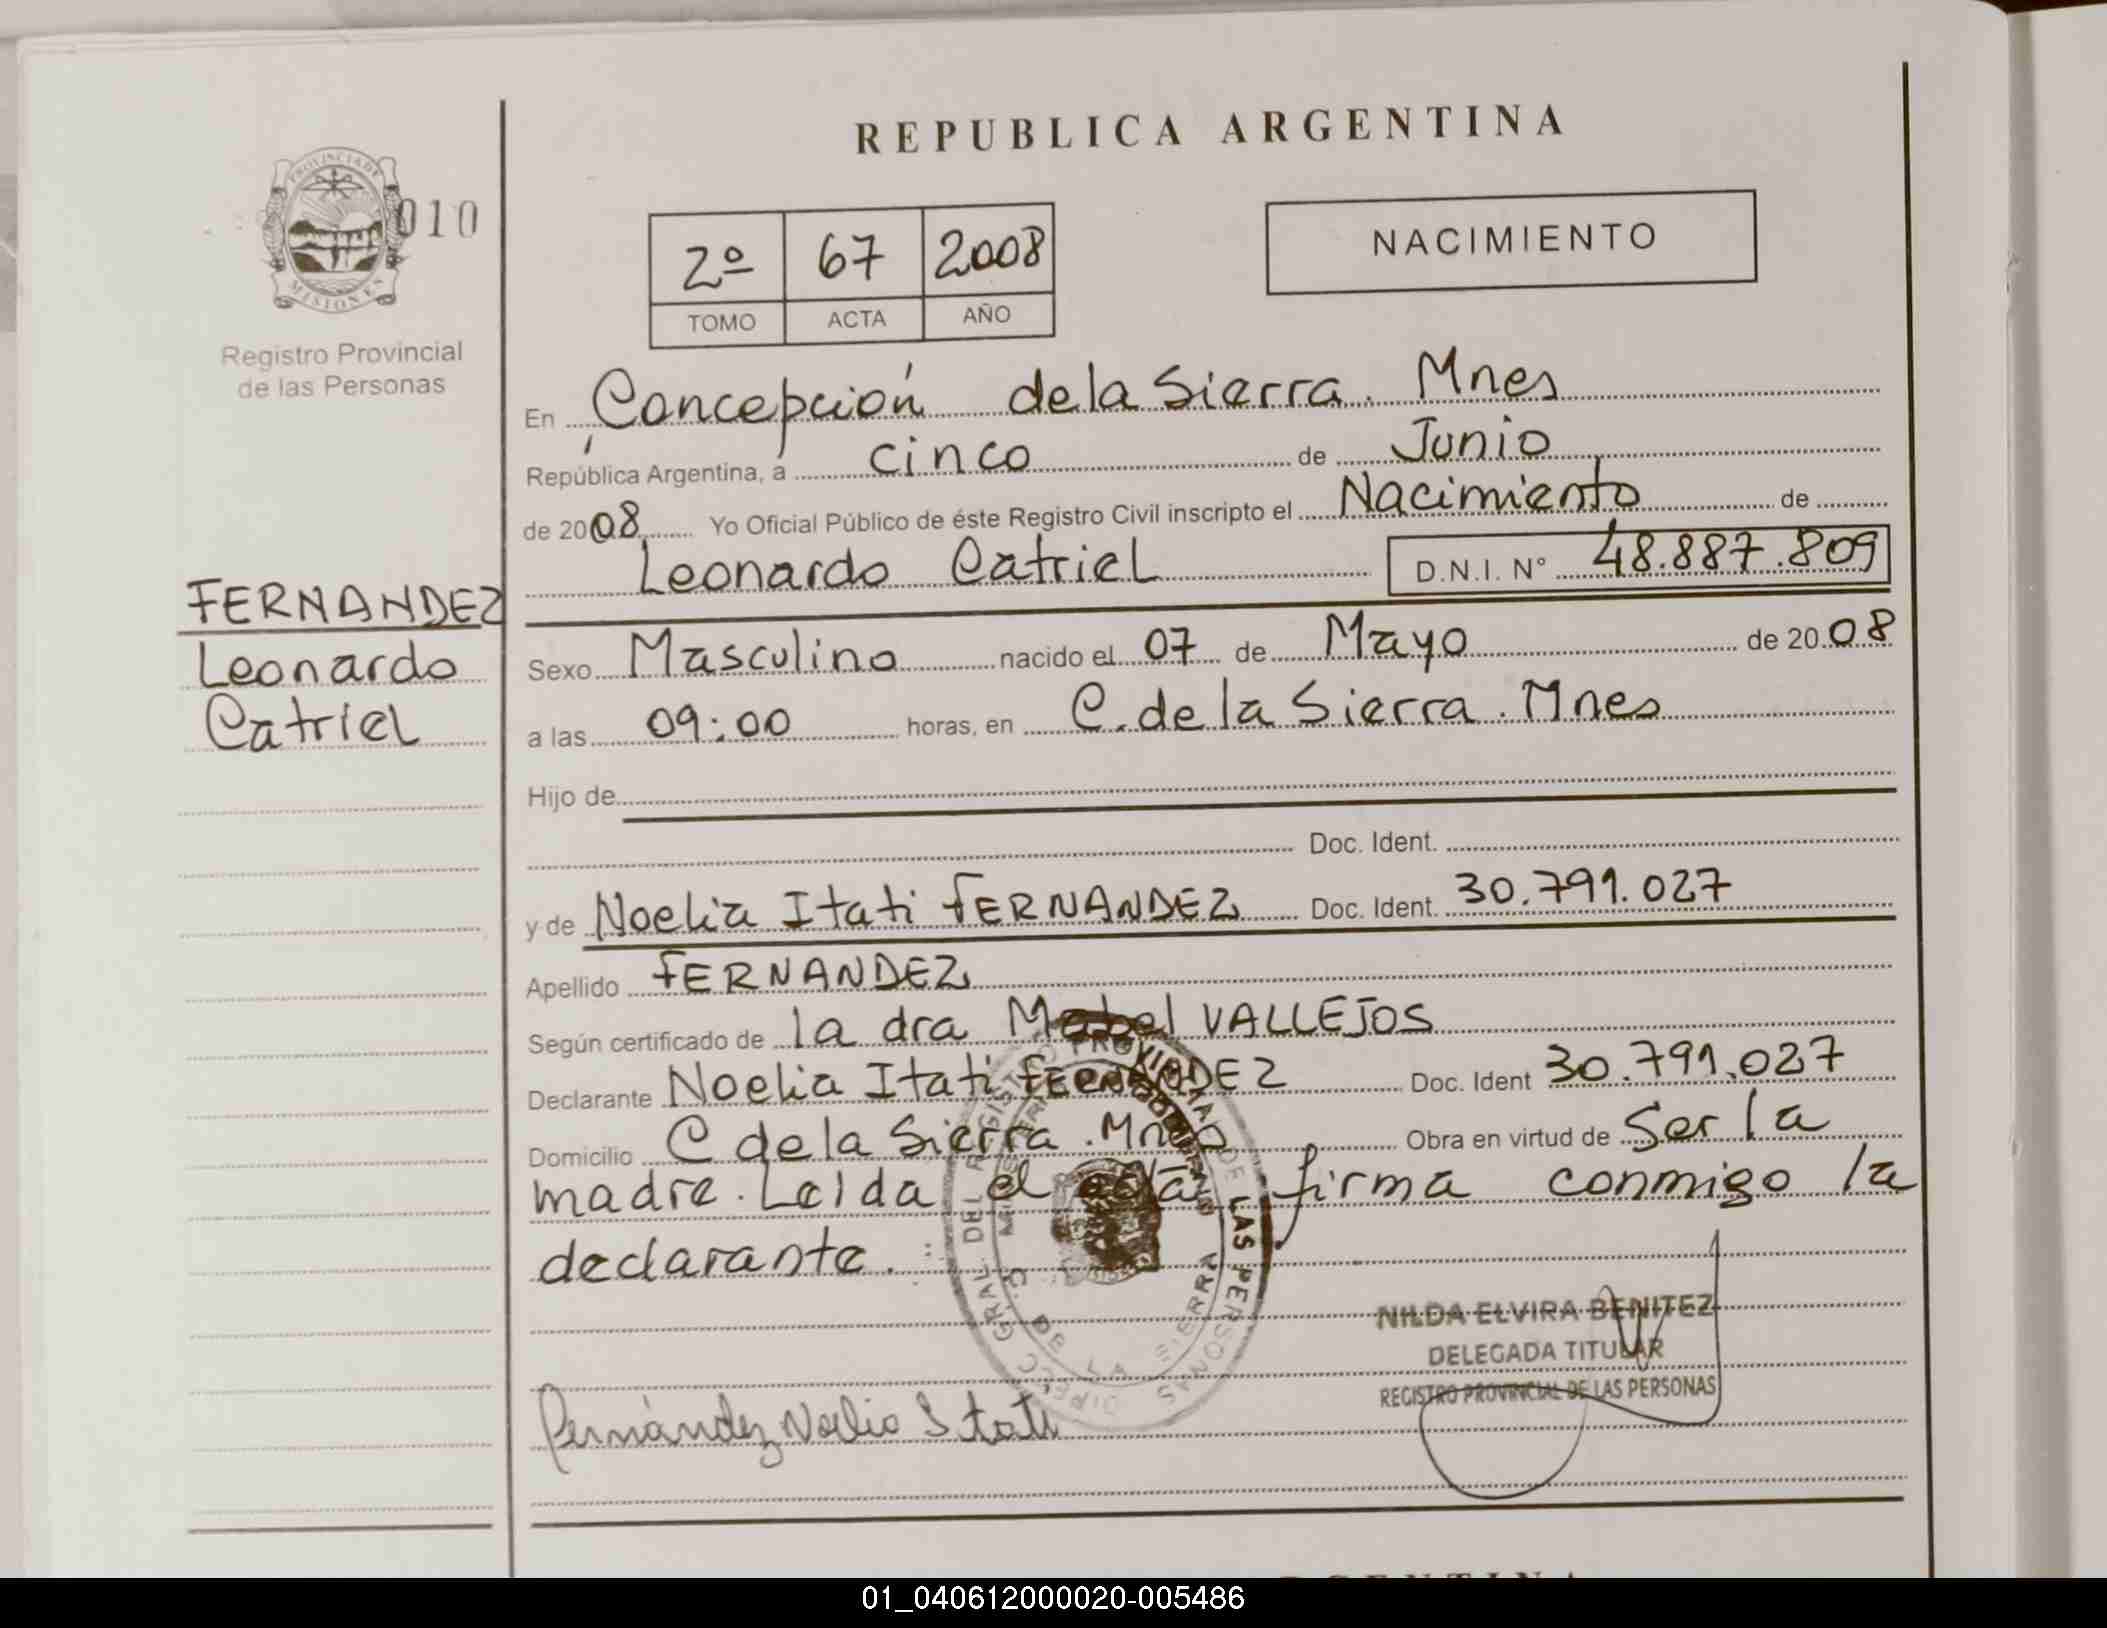 REPUBLICA ARGENTINA
PROVINCIA DE
MISIONES
010
Registro Provincial
de las Personas
2º 67 2008
TOMO ACTA AÑO
NACIMIENTO
En Concepción de la Sierra. Mnes
República Argentina, a cinco de Junio
de 2008 Yo Oficial Público de éste Registro Civil inscripto el Nacimiento de
Leonardo Catriel D.N.I. Nº 48.887.809
FERNANDEZ
Leonardo
Catriel
Sexo Masculino nacido el 07 de Mayo de 2008
a las 09:00 horas, en C. de la Sierra. Mnes
Hijo de
Doc. Ident.
y de Noelia Itati FERNANDEZ Doc. Ident. 30.791.027
Apellido FERNANDEZ
Según certificado de la dra Mabel VALLEJOS
Declarante Noelia Itati FERNANDEZ Doc. Ident 30.791.027
Domicilio C de la Sierra. Mnes Obra en virtud de Ser la
madre. Leida el acta firma conmigo la
declarante.
DIRECC GRAL. DEL REGISTRO PROVINCIAL DE LAS PERSONAS
C. DE LA SIERRA
NILDA ELVIRA BENITEZ
DELEGADA TITULAR
REGISTRO PROVINCIAL DE LAS PERSONAS
Fernández Noelia Itati
01_040612000020-005486